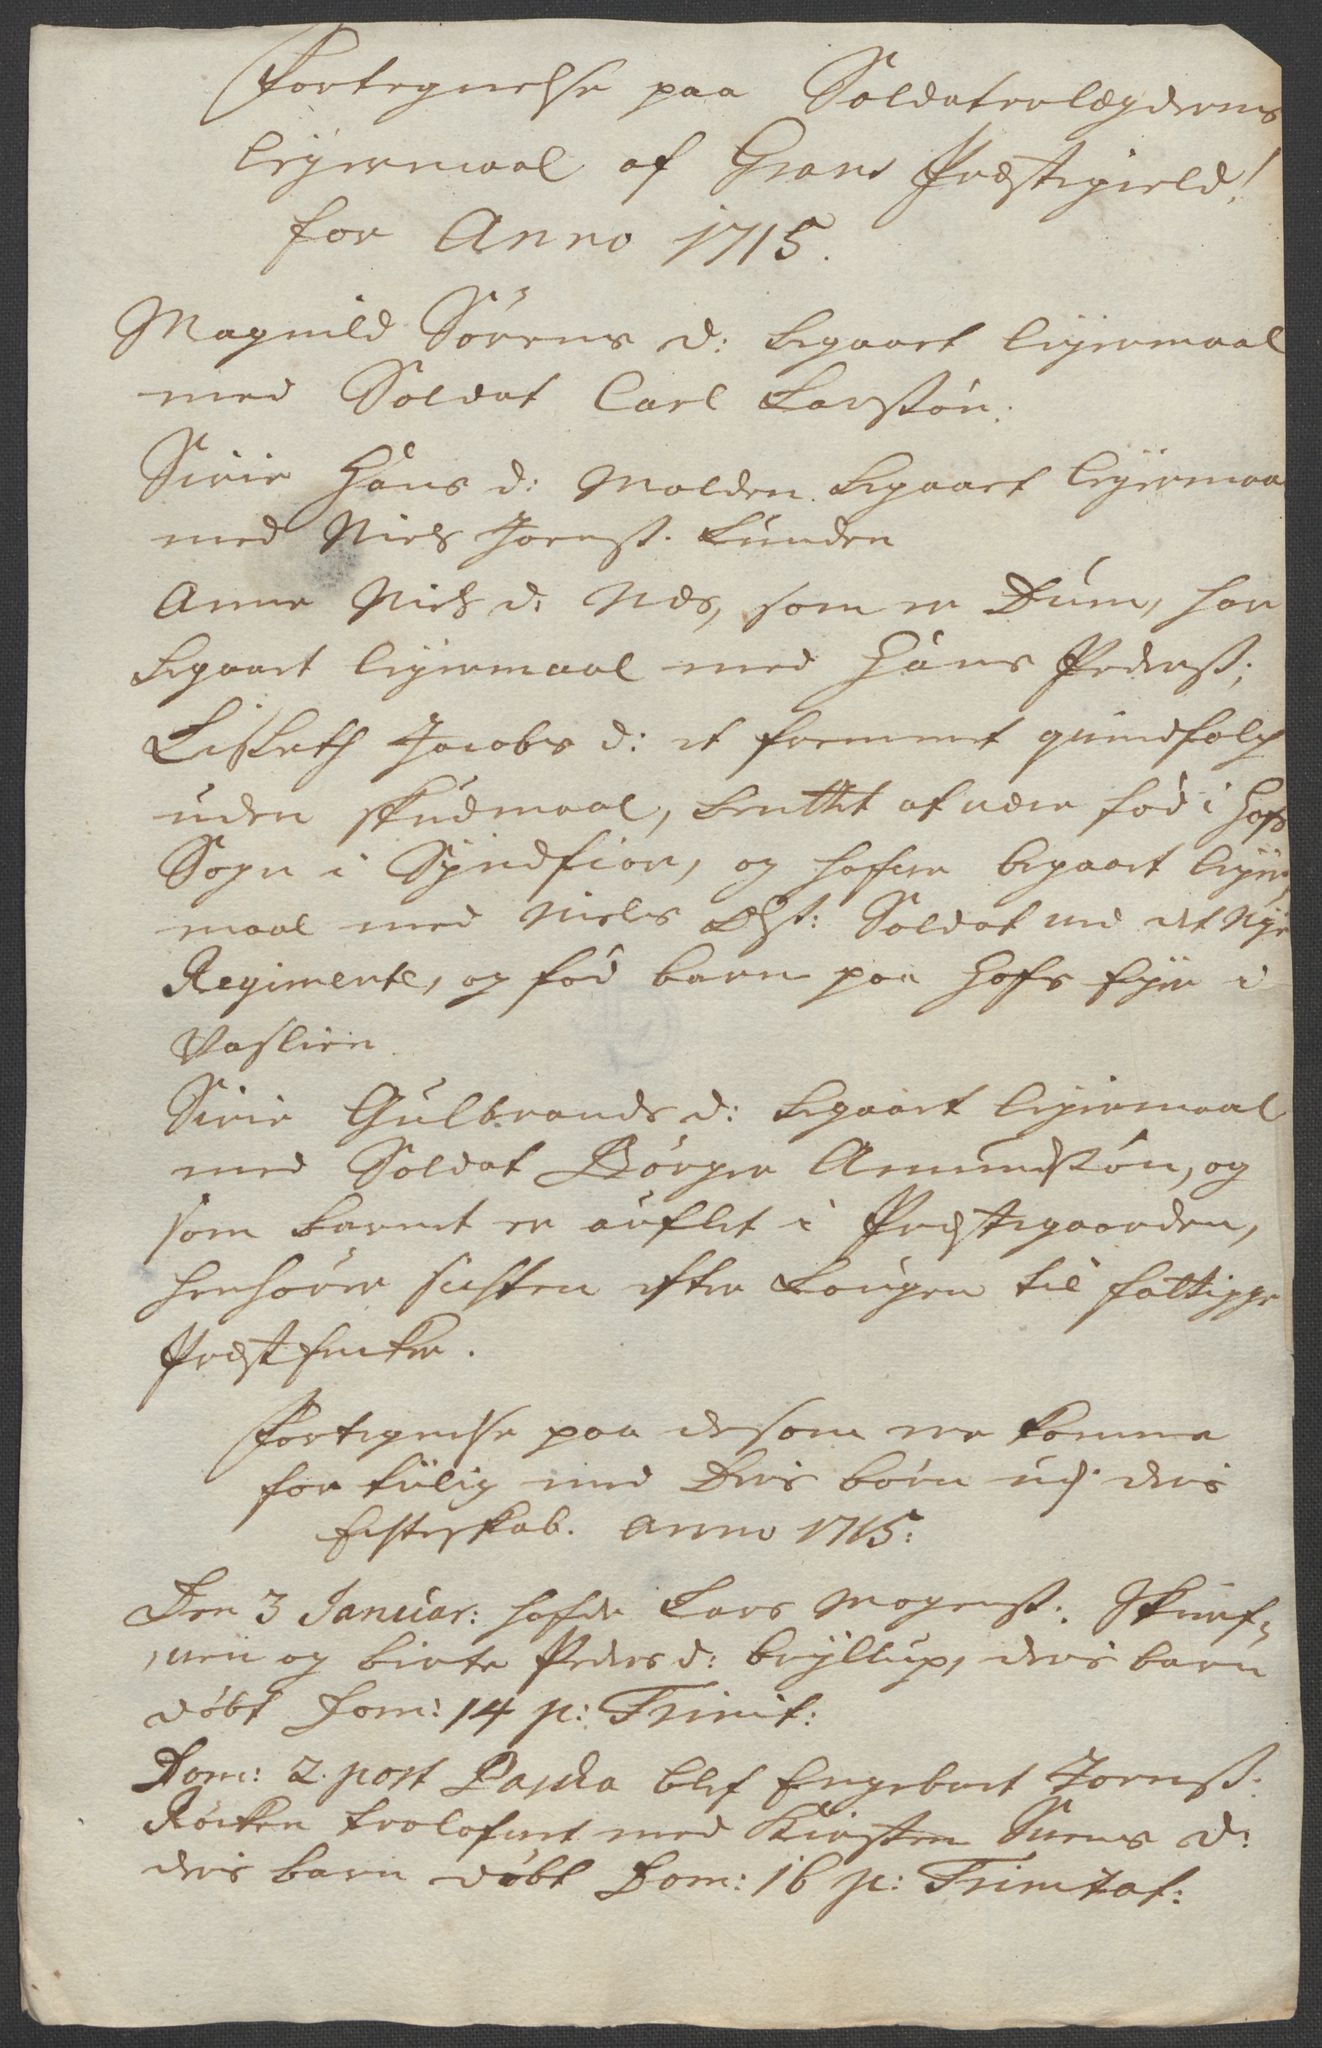 Fortegnelse paa Soldaterlægdernes
leyermaal af Grans Præstegield!
for Anno 1715.
Magnild Sørens d: begaaet leyermaal
med Soldat Carl Larssøn.
Sirie Hans d: Molden begaaet leyermaal
med Niels Joenss. Lunden
Anne Niels d: Næs, som er Dum, har
begaaet leyermaal med Hans Pederss;
Lisbeth Jacobs d: et fremmet quindfolch
uden skudmaal, berettet at være fød i Hofs
Sogn i Syndfior, og hafuer begaaet leyer
maal med Niels Soldat ved det Nye
Regimente, og fød barn paa Hofs Eyer i
Vaslien.
Sirie Gulbrands d: begaaet leyermaal
med Soldat Børger Amundssøn, og
som barnet er auflet i Præstegaarden,
henhører sigten efter Lougen til fattigge
Præstencker.
Fortegnelse paa de som ere komne
for tiilig med deris børn udj deris
Egteskab. Anno 1715:
Den 3 Januar: hafde Lars Mogenss:
og Birte Peders d: brÿllup, deris barn
døbt Dom: 14 p: Trinit:
Dom: 2. post Pascha blef Engebret Joenss:
Røcken trolofuet med Kirsten Suens d:
deris barn døbt Dom: 16 p: Trinitat: